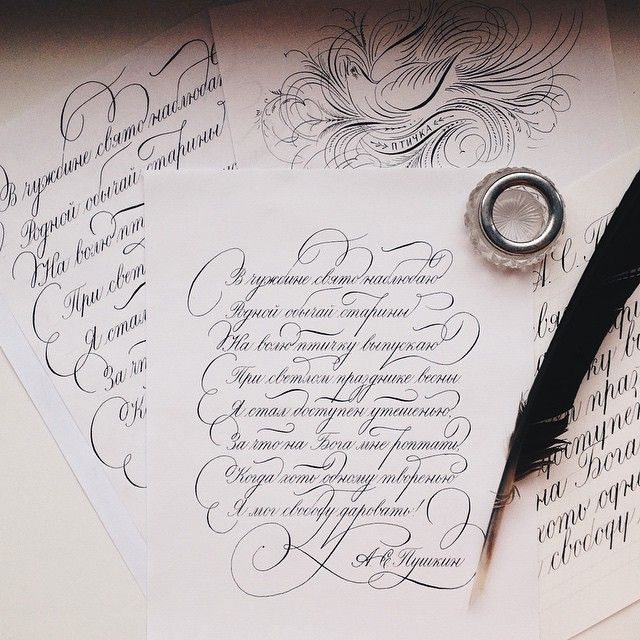 ПТИЧКА
В чужбине свято наблюда
Родной обычай старины
На волю птичк
При свет
Я стал
За чт
К
В чужбине свято наблюдаю
Родной обычай старины
На волю птичку выпускаю
При светлом празднике весны
Я стал доступен утешенью,
За что на Бога мне роптать,
Когда хоть одному творенью
Я мог свободу даровать!
А С Пушкин
А.С. П
праз
доступен
на Бога
хоть одно
свободу